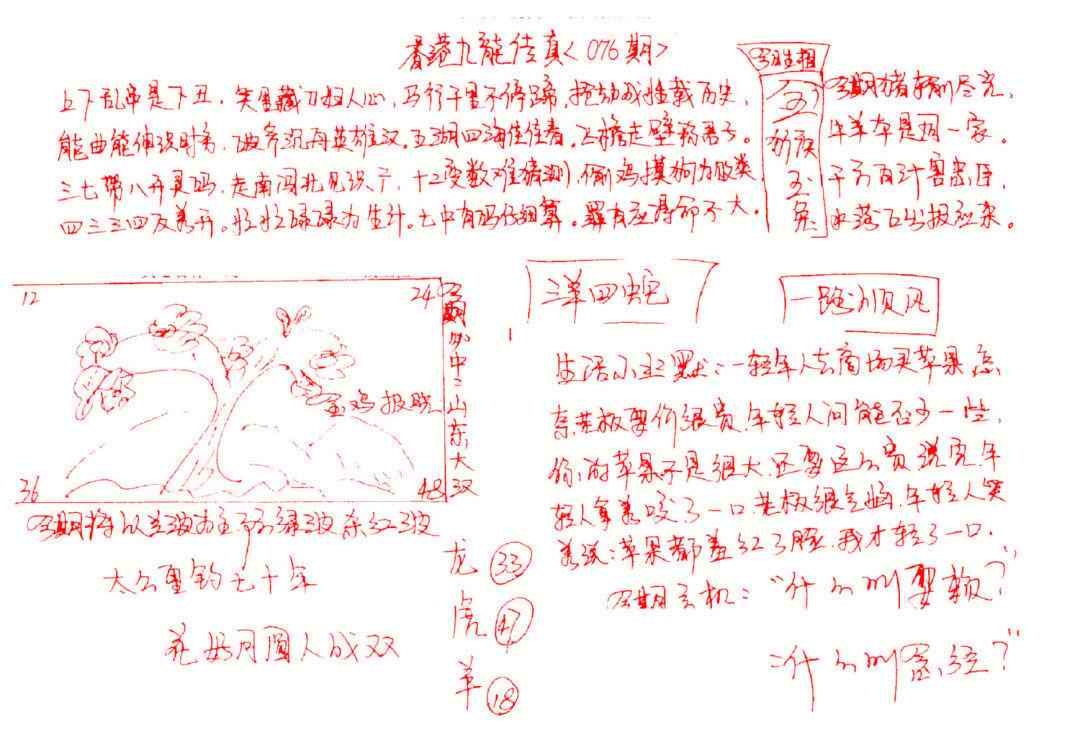 香港九龙传真<076期>
上下乱串是下丑，笑里藏刀扫人心，马行千里不停蹄，摇动战性载历史，
能曲能伸识时务，破斧沉舟英雄汉。五湖四海任住春。飞檐走壁
三七带八开灵码，走南闯北见识广，十二变数难猜测，偷鸡摸狗为败类
四三三四反着开。忙忙碌碌为生计。七中有码仔细算。罪有应得命不大。
今期生相
金
猴
玉
兔
今期猪
牛羊本是同一家。
千方百计害忠臣，
水落石出报应来。
12
24
36
48
金鸡报晓
今期必中：山东大汉
今期将以兰波为主 防绿波杂红波
太公垂钓七十年
花好月圆人成双
龙 33
虎 47
羊 18
三羊四蛇
一路顺风
生活小幽默：一年轻人去商场买苹果，
奈老板要价很贵，年轻人问能否少一些，
你的苹果不是很大，还要这么贵，说完，年
轻人拿着咬了一口，老板很气恼，年轻人笑
着说：苹果都羞红了脸，我才轻了一口。
今期玄机："什么叫耍赖？"
："什么叫